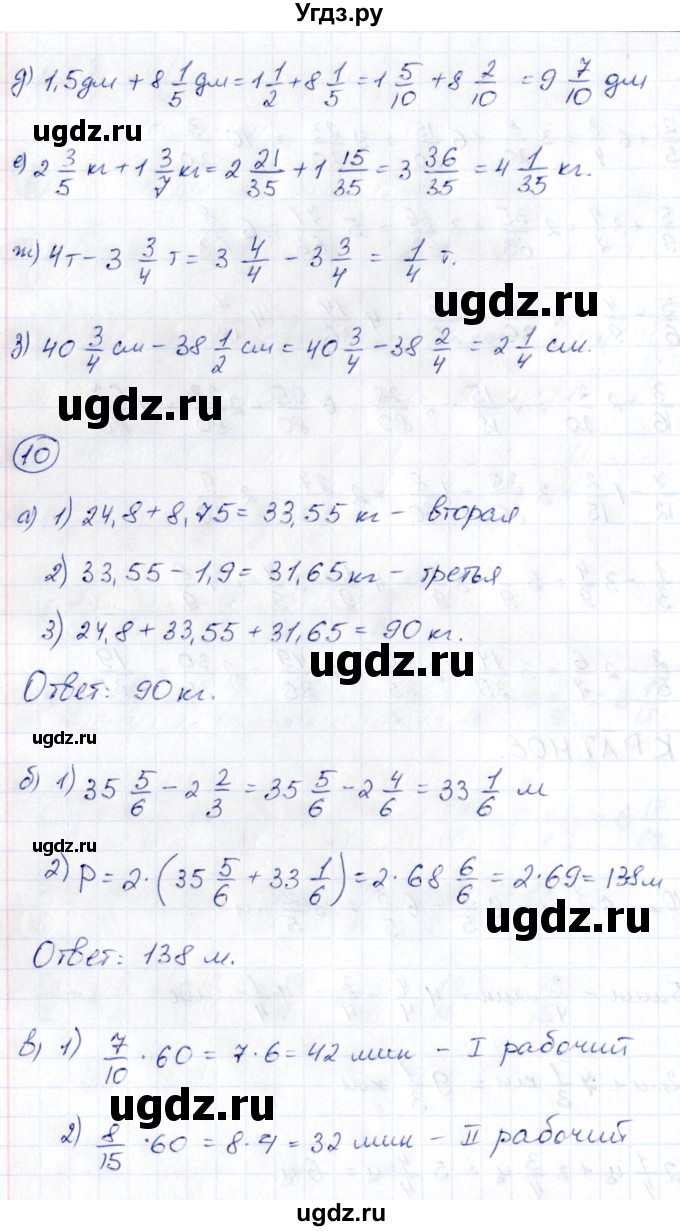 Угдз.ру
д) 1,5дм + 8 1/5 дм = 1 1/2 + 8 1/5 = 1 5/10 + 8 2/10 = 9 7/10 дм
ugdz.ru
е) 2 3/5 кг + 1 3/7 кг = 2 21/35 + 1 15/35 = 3 36/35 = 4 1/35 кг.
ж) 4т - 3 3/4 т = 3 4/4 - 3 3/4 = 1/4 т.
ugdz.ru
з) 40 3/4 см - 38 1/2 см = 40 3/4 - 38 2/4 = 2 1/4 см.
ugdz.ru
10
а) 1) 24,8 + 8,75 = 33,55 кг - вторая
2) 33,55 - 1,9 = 31,65 кг - третья
3) 24,8 + 33,55 + 31,65 = 90 кг.
ugdz.ru
Ответ: 90 кг.
ugdz.ru
б) 1) 35 5/6 - 2 2/3 = 35 5/6 - 2 4/6 = 33 1/6 м
ugdz.ru
2) P = 2·(35 5/6 + 33 1/6) = 2·68 6/6 = 2·69 = 138м
ugdz.ru
Ответ: 138 м.
в) 1) 7/10 · 60 = 7·6 = 42 мин - I рабочий
ugdz.ru
2) 8/15 · 60 = 8·4 = 32 мин - II рабочий
ugdz.ru
ugdz.ru